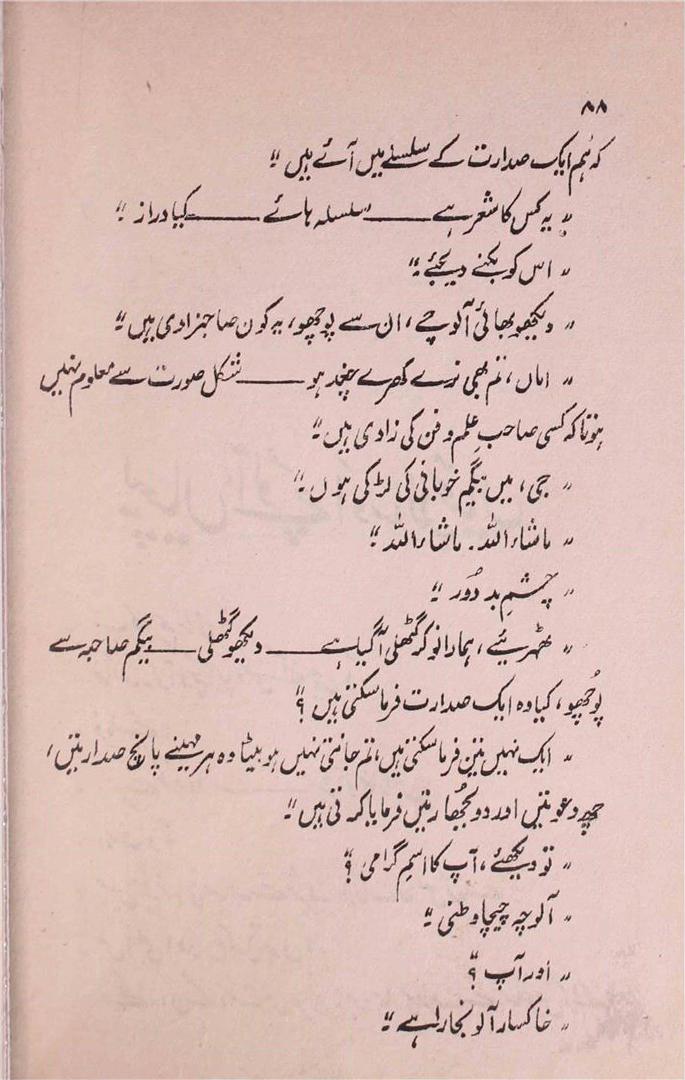 ۸۸
کہ ہم ایک صدارت کے سلسلے میں آئے ہیں "
" یہ کس کا شعر ہے —— سلسلہ ہائے —— کیا دراز "
" اس کو بکنے دیجئے "
" دیکھو بھائی آلوچے، ان سے پوچھو، یہ کون صاحبزادی ہیں "
" اماں، تم بھی نرے کھرے چغد ہو —— شکل صورت سے معلوم نہیں
ہوتا کہ کسی صاحبِ علم و فن کی زادی ہیں "
" جی، میں بیگم خوبانی کی لڑکی ہوں "
" ماشاء اللہ۔ ماشاء اللہ "
" چشمِ بد دُور "
" ٹھہریئے، ہمارا نوکر گٹھلی آگیا ہے —— دیکھو گٹھلی —— بیگم صاحبہ سے
پُوچھو، کیا وہ ایک صدارت فرما سکتی ہیں ؟"
" ایک نہیں تین فرما سکتی ہیں، تم جانتی نہیں ہو بیٹا وہ ہر مہینے پانچ صدارتیں،
چھ دعوتیں اور دو بُچھارتیں فرمایا کرتی ہیں "
" تو دیکھئے، آپ کا اسمِ گرامی ؟"
" آلوچہ چیچا وطنی "
" اور آپ ؟"
" خاکسار آلو بخارا ہے "